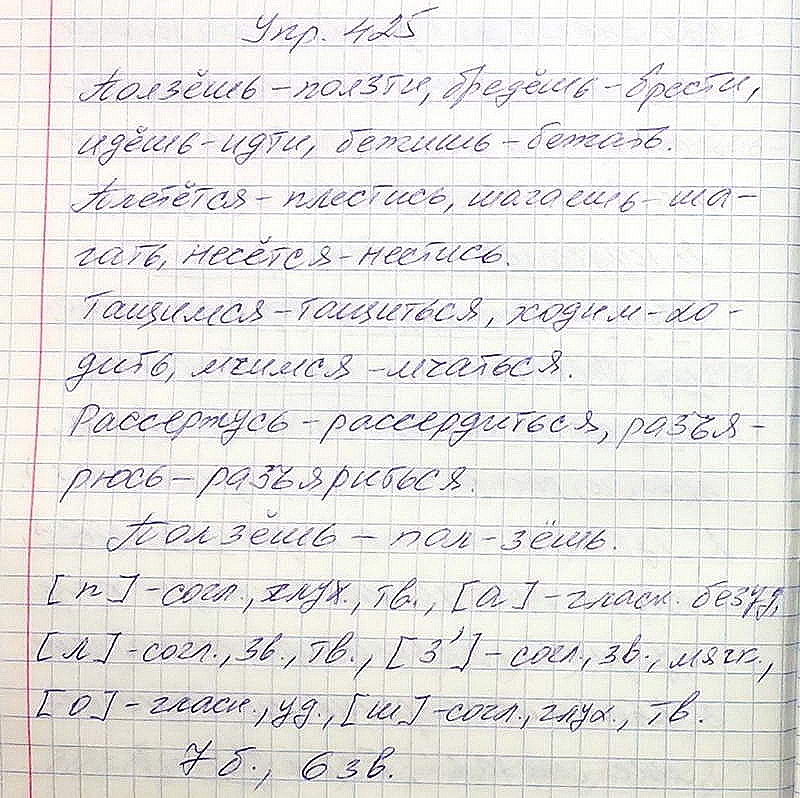 Упр. 425
Ползёшь - ползти, бредёшь - брести,
идёшь - идти, бежишь - бежать.
Плетётся - плестись, шагаешь - ша-
гать, несётся - нестись.
Тащимся - тащиться, ходим - хо-
дить, мчимся - мчаться.
Рассержусь - рассердиться, разъя-
рюсь - разъяриться.
Ползёшь - пол-зёшь.
[п] - согл., глух., тв., [а] - гласн. безуд,
[л] - согл., зв., тв., [з'] - согл., зв., мягк.,
[о] - гласн., уд., [ш] - согл., глух., тв.
7 б., 6 зв.